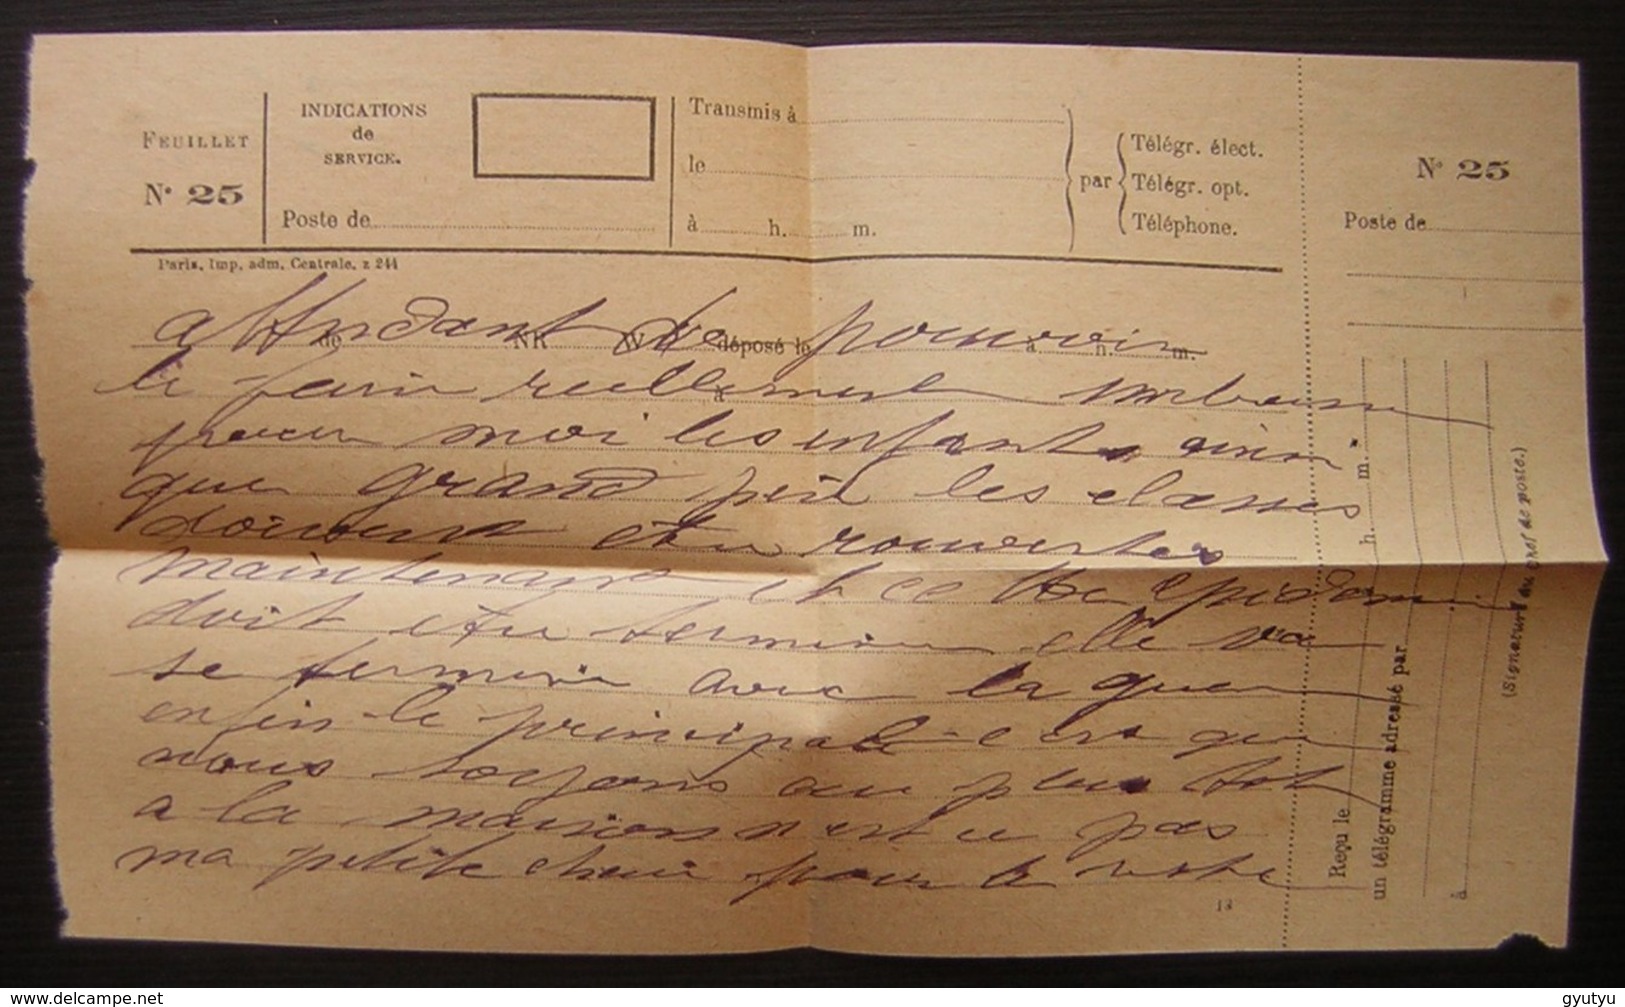 FEUILLET
N° 25
INDICATIONS
de
SERVICE.
Poste de
Transmis à
le
à h. m.
par
Télégr. élect.
Télégr. opt.
Téléphone.
N° 25
Poste de
Paris, Imp, adm, Centrale, z 244
de NR W déposé le à h. m.
à
attendant de pouvoir
le faire reellement embrasse
pour moi les enfants ainsi
que grand père les classes
doivent etre rouvertes
maintenant et cette epidemie
doit etre terminée elle va
se terminer avec la guerre
enfin le principale c'est que
nous soyons au plus tot
a la maison n'est ce pas
ma petite cherie pour le reste
13
Reçu le à h. m.
un télégramme adressé par
à
(Signature du chef de poste.)
delcampe.net
gyutyu